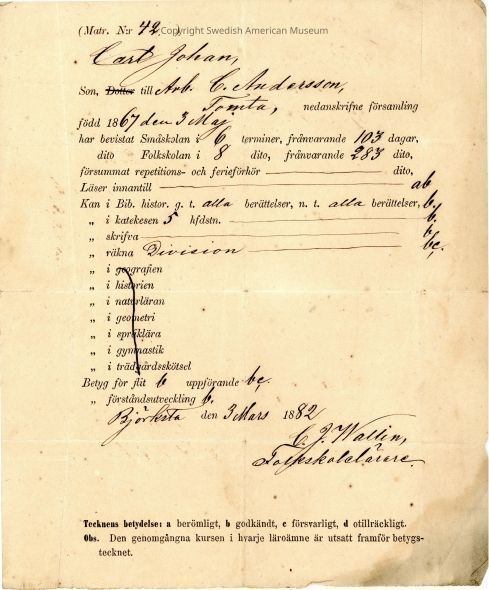 (Matr. N:r 42 ) Copyright Swedish American Museum
Carl Johan,
Son, Dotter till Arb. C. Andersson,
Tomta, nedanskrifne församling
född 1867 den 3 Maj
har bevistat Småskolan i 6 terminer, frånvarande 103 dagar,
dito Folkskolan i 8 dito, frånvarande 283 dito,
försummat repetitions- och ferieförhör dito,
Läser innantill ab
Kan i Bib. histor. g. t. alla berättelser, n. t. alla berättelser, b.
„ i katekesen 5 hfdstn. b.
„ skrifva b
„ räkna Division bc.
„ i geografien
„ i historien
„ i naturläran
„ i geometri
„ i språklära
„ i gymnastik
„ i trädgårdsskötsel
Betyg för flit b uppförande bc.
„ förståndsutveckling b.
Björksta den 3 Mars 1882
C. J. Wallin,
Folkskolelärare.
Tecknens betydelse: a berömligt, b godkändt, c försvarligt, d otillräckligt.
Obs. Den genomgångna kursen i hvarje läroämne är utsatt framför betygs-
tecknet.